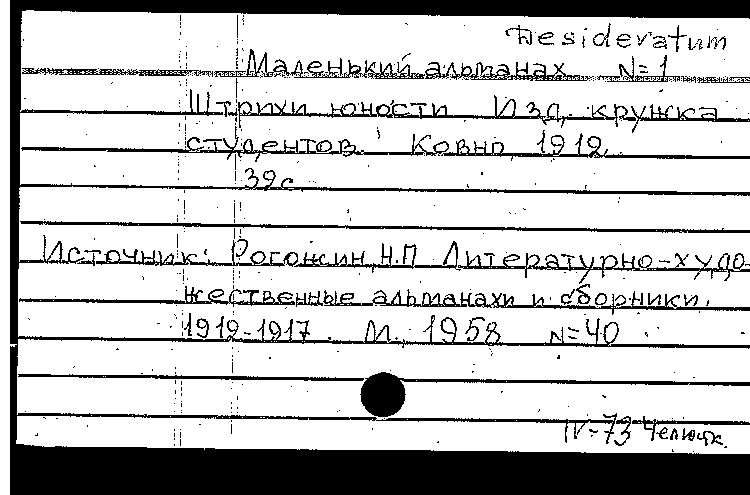 Desideratum
Маленький альманах N=1
Штрихи юности Изд. кружка
студентов. Ковно, 1912.
32с.
Источник: Рогожин, Н.П Литературно-худо-
жественные альманахи и сборники.
1912-1917. М., 1958 N=40
IV-73 Челюск.